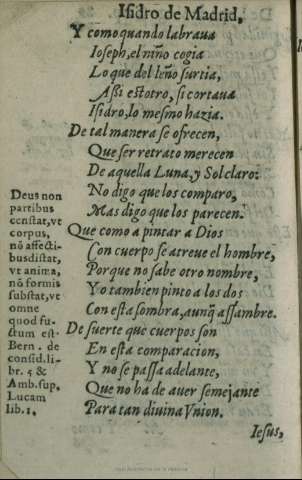 Isidro de Madrid,
Y como quando labraua
Ioseph, el niño cogia
Lo que del leño surtia,
Assi estotro, si cortaua
Isidro, lo mesmo hazia.
De tal manera se ofrecen,
Que ser retrato merecen
De aquella Luna, y Sol claro:
No digo que los comparo,
Mas digo que los parecen.
Que como a pintar a Dios
Con cuerpo se atreue el hombre,
Porque no sabe otro nombre,
Yo tambien pinto a los dos
Con esta sombra, aunq̃ assombre.
De suerte que cuerpos son
En esta comparacion,
Y no se passa adelante,
Que no ha de auer semejante
Para tan diuina Vnion.
Iesus,
Deus non
partibus
cõnstat, vt
corpus,
nõ affecti-
bus distat,
vt anima,
nõ formis
substat, vt
omne
quod fu-
ctum est.
Bern. de
consid. li-
br. 5 &
Amb. sup.
Lucam
lib. 1.